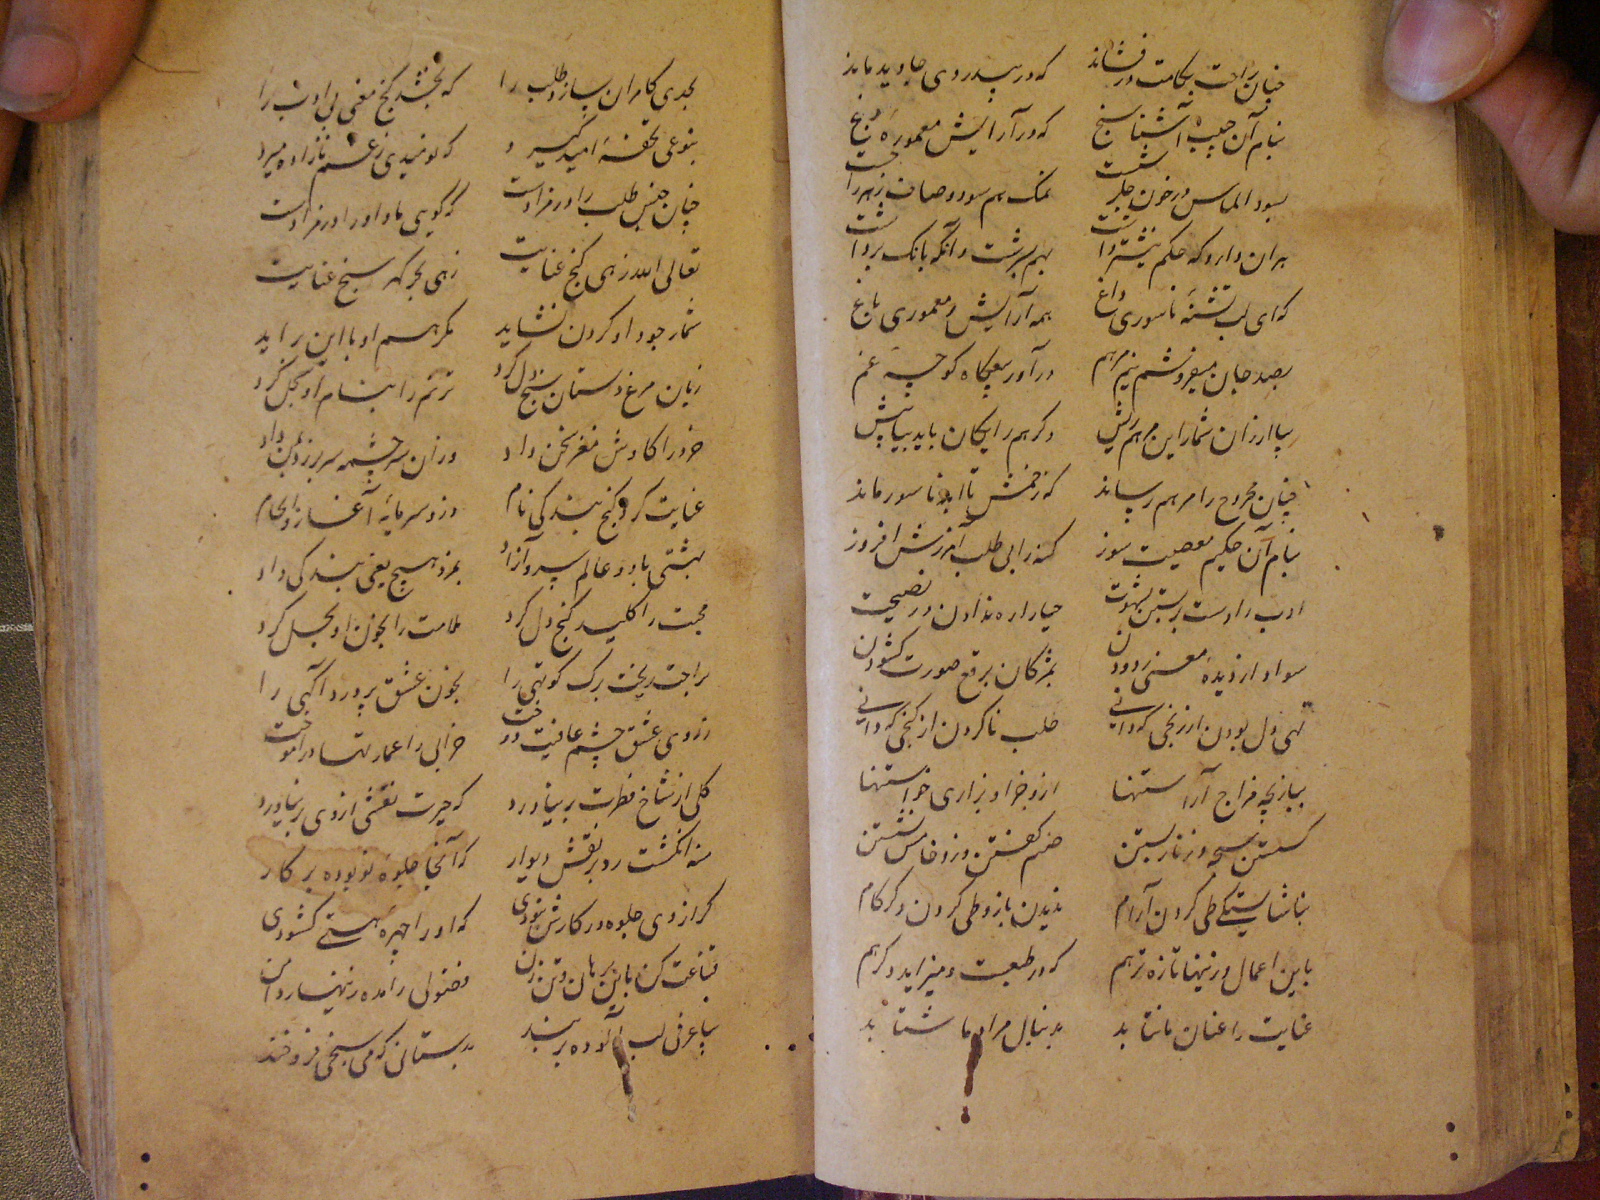 چنان راحت بکامت در فشاند که در پیدردی جاوید ماند
بنام آن حبیب آشتا سنج که در آرایش معموره
بسود الماس در خون جگر شست نمک هم سود و صاف زهر را جست
بر آن دارد که حکم نیشتر داشت بهم سرشت وانگه بانک برداشت
که ای لب تشنهٔ ناسوری داغ همه آرایش و معموری باغ
بصد جان میفروشم نیم مرهم در آور کوچهٔ غم
بپا ارزان شمار این مرهم ریش وگر هم رایگان باید بیا پیش
چنان مجروح را مرهم رساند که زخمش تا ابد ناسور ماند
بنام آن حکیم معصیت سوز گنه را بی طلب آمرزش افروز
ادب را دست بر بستن بشهوت حیا را ره ندادن در نصیحت
سواد از دیدهٔ معنی زدودن بمژکان برقع صورت گشودن
تهی دل بودن از رنجی که دانی طلب ناکردن از گنجی که دانی
ببازیچه مزاج آراستنها ازو جزا و بزاری خواستنها
گسستن سبحه و زنار بستن صنم گفتن و زو خامش نشستن
بناشایستگی طی کردن آرام ندیدن باز و طی کردن دگر گام
باین اعمال و زینها تازه تر هم که در طبعت و میزاید دگر هم
عنایت را عنان ما نتابد بدنبال مراد ما شتابد
بجدی کامران سازد طلب را که بخشد گنج معنی بی ادب را
بنوعی تحفهٔ امید گیرد که نومیدی ز غم نازاده میرد
چنان جنس طلب را در مزادست که گویی ما و او را در مرادست
تعالی الله زهی گنج عنایت زهی بحر گهر سنج عنایت
شمار جود او کردن نشاید مگر هم او با این بر آید
زبان مرغ دستان سنج دل کرد ترنم را بنام او بحل کرد
خرد را کاوش مغز سخن داد وزان سرچشمه سر بر زدن داد
عنایت کرد گنج بندگی نام درو سرمایهٔ آغاز و انجام
بهشتی با دو عالم سیر و آزاد بمزد هیچ یعنی بندگی داد
محبت را کلید گنج دل کرد ملامت را بخون او بحل کرد
براحت ریخت برگ کوتهی را بخون عشق پرورد آگهی را
ز روی عشق چشم عافیت دوخت خرابی را عمارتها در آموخت
گلی از شاخ فطرت بر نیاورد که حیرت نقشی از وی بر نیاورد
منه انگشت رد بر نقش دیوار که آنجا جلوهٔ نو بوده بر کار
گر از وی جلوه در کارش نبودی که او را چهرهٔ هستی گشودی
قناعت کن باین برهان و تن زن فضولی را مده زینهار دامن
بیا عرفی لب آلوده بر بند بدستانی که می سنجی فرو خند